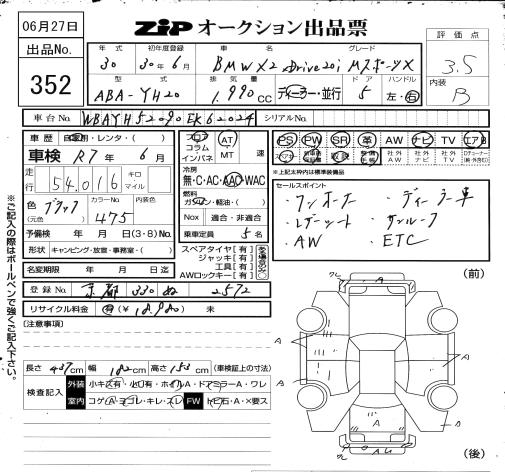 06月27日
ZIP オークション出品票
出品No.
352
年式 初年度登録 車名 グレード
30 30年6月 BMW X2 xDrive20i MスポーツX
型式 排気量 ドア ハンドル
ABA-YH20 1,990cc ディーラー・並行 5 左・右
評価点
3.5
内装
B
車台No. WBAYH52090EK62024 シリアルNo.
車歴 自家用・レンタ・( )
車検 R7年 6月
走行 54,016 キロ マイル
色 (元色) ブラック カラーNo. 475 内装色
予備検 年 月 日(3・8)No.
形状 キャンピング・放宣・事務室・( )
名変期限 年 月 日迄
フロア コラム インパネ AT MT 速
冷房 無・C・AC・AAC・WAC
燃料 ガソリン・軽油・( )
Nox 適合・非適合
乗車定員 5名
スペアタイヤ[有]
ジャッキ[有]
工具[有]
AWロックキー[有]
PS PW SR 革 AW ナビ TV エアB
社外AW 社外ナビ 社外TV
※上記太枠内は標準装備品
セールスポイント
・ワンオーナー ・ディーラー車
・レザーシート ・サンルーフ
・AW ・ETC
登録No. 京都 330 ぬ 2572
リサイクル料金 有(¥18,980) 未
[注意事項]
長さ 437cm 幅 182cm 高さ 153cm (車検証上の寸法)
検査記入 外装 小キズ有・小凹有・ホイルA・ドアミラーA・ワレ
室内 コゲA・ヨゴレ・キレ・スレ FW トビ石・A・X要ス
(前)
A
A
A
A
A
(後)
※ご記入の際はボールペンで強くご記入下さい。